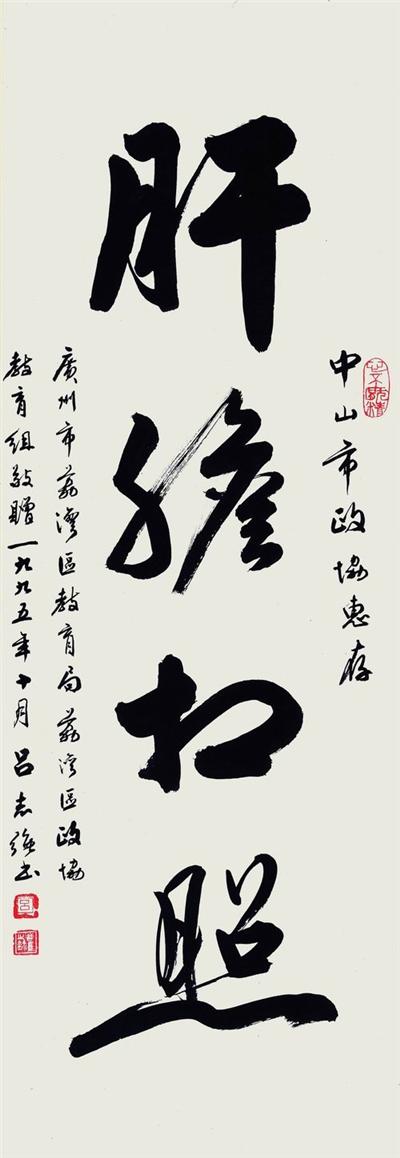 中山市政協惠存
肝膽相照
廣州市荔灣區教育局荔灣區政協
教育組敬贈一九九五年十月呂志強書